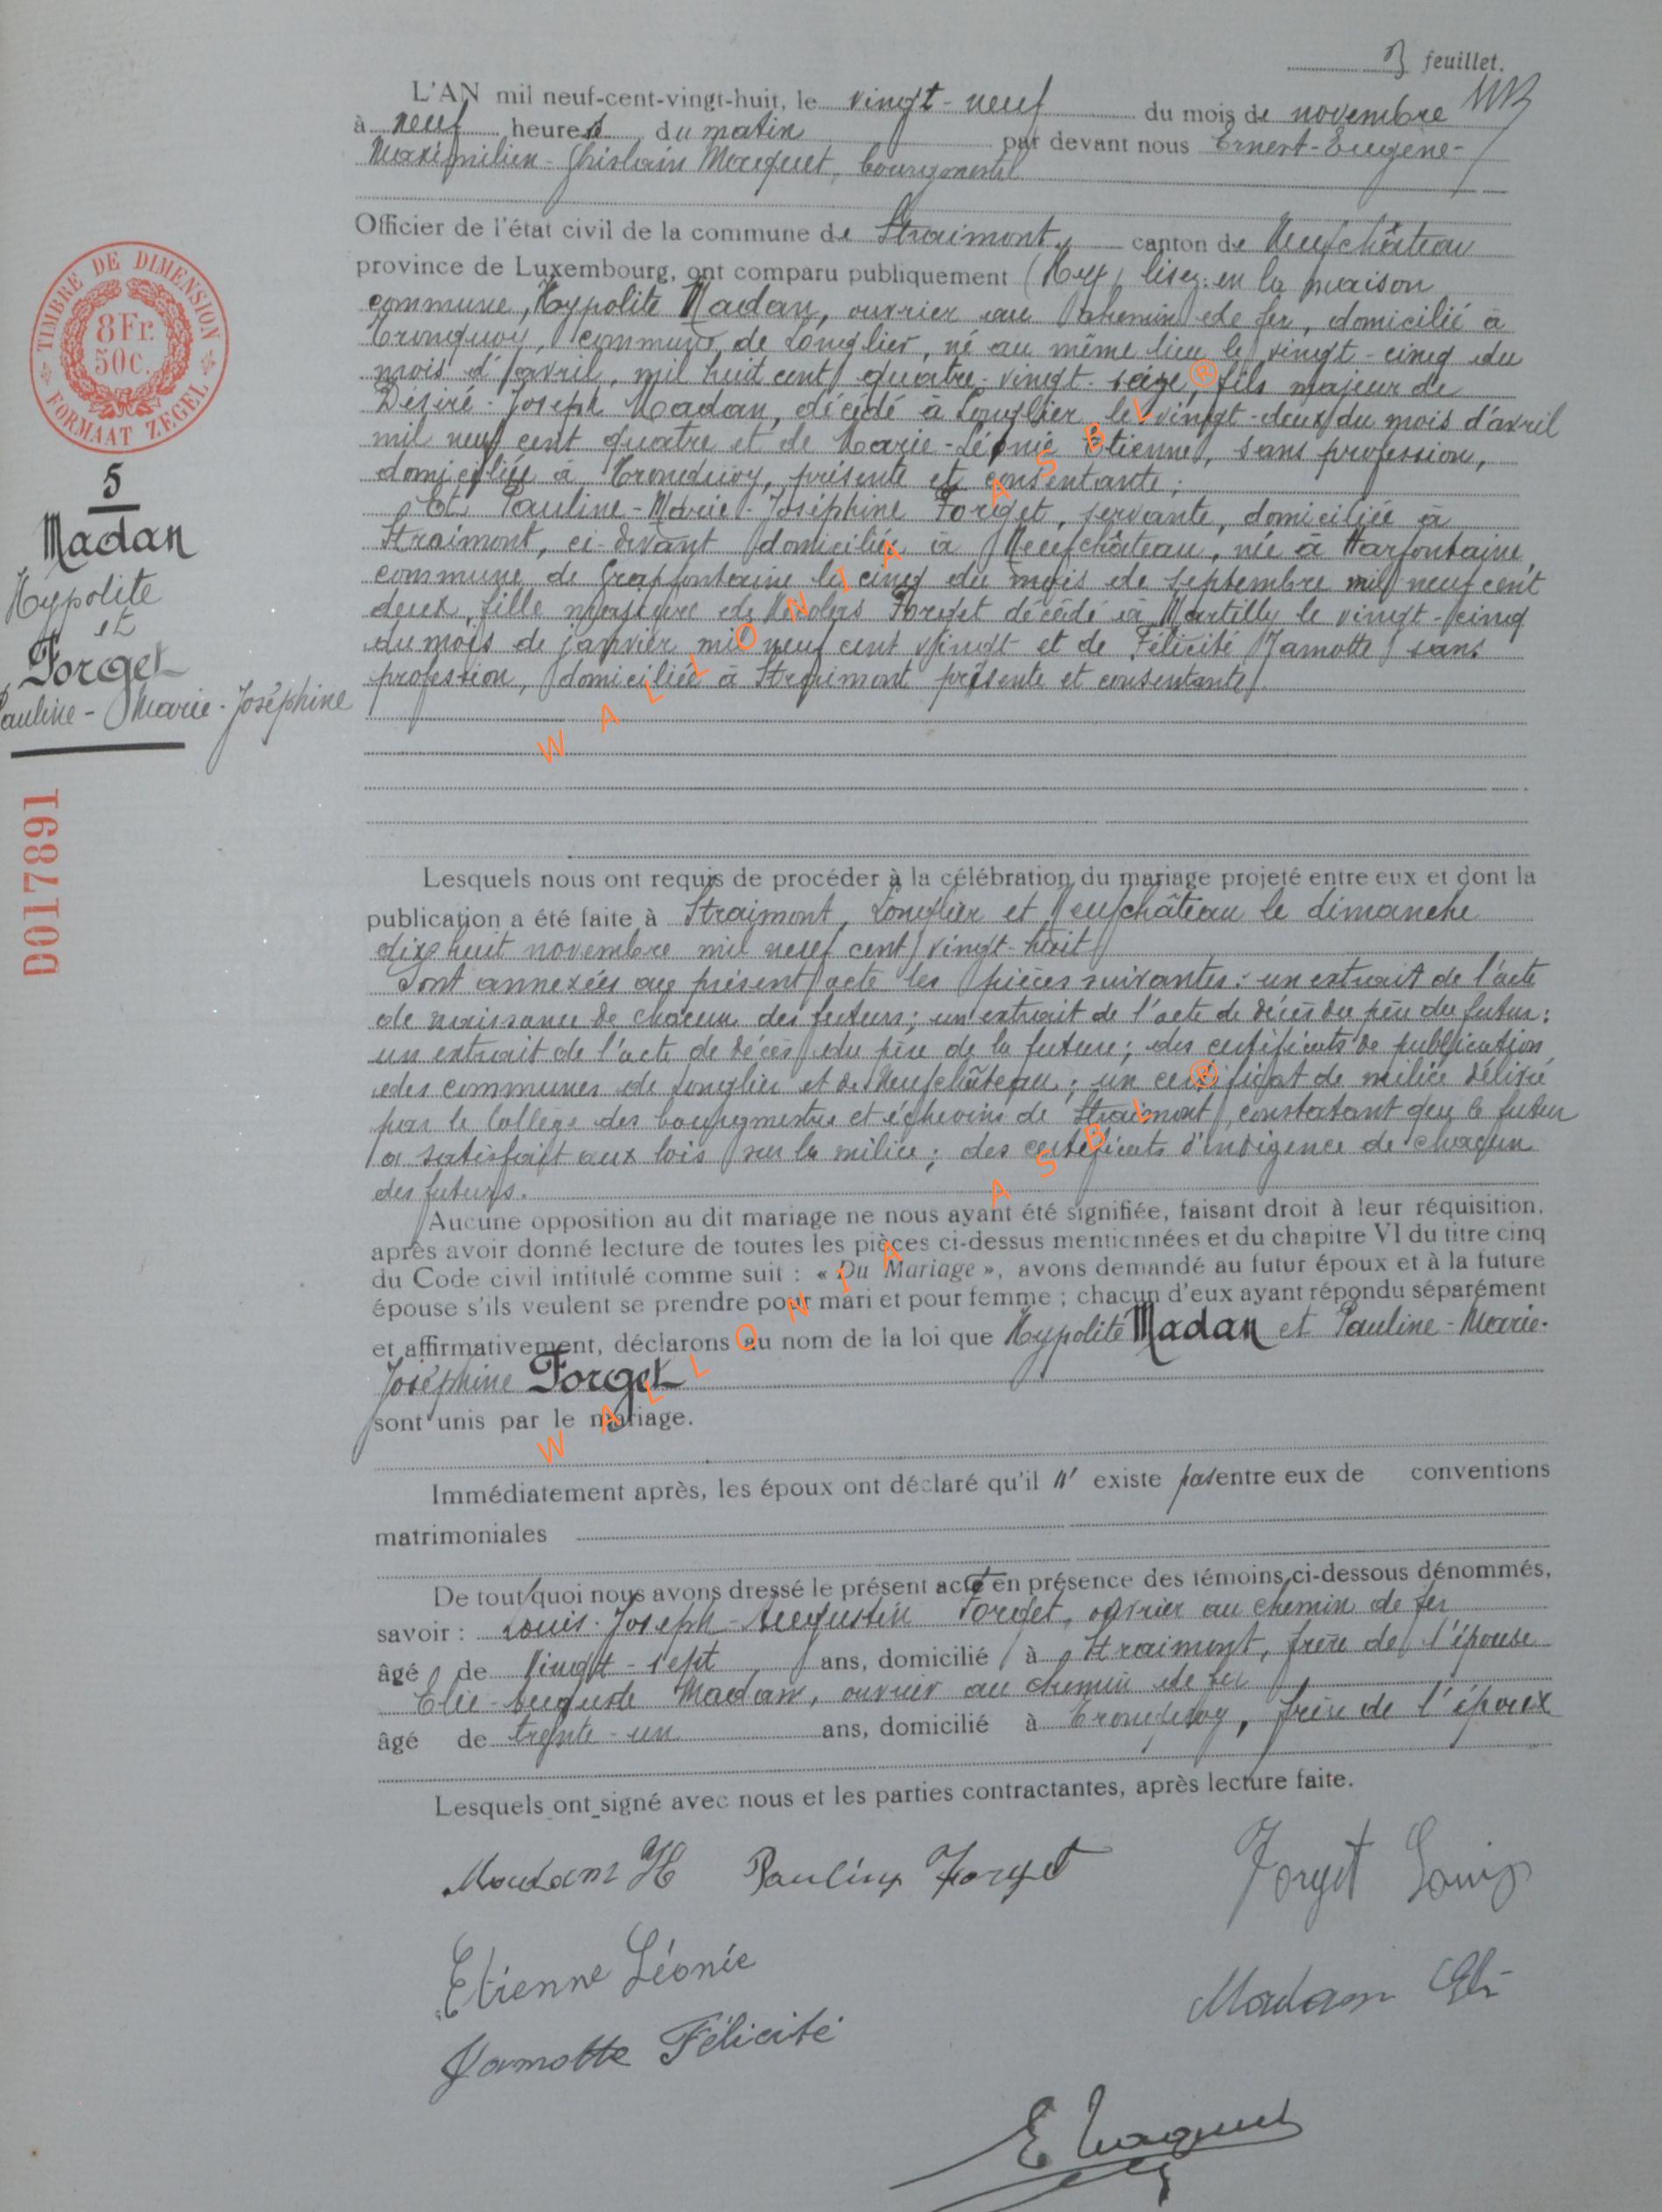 3 feuillet.
L'AN mil neuf-cent-vingt-huit, le vingt-neuf du mois de novembre
à neuf heures du matin par devant nous Ernest-Eugène-
Maximilien-Ghislain Maquet, bourgmestre
Officier de l'état civil de la commune de Straimont, canton de Neufchâteau
province de Luxembourg, ont comparu publiquement (Hyp) lisez: en la maison
commune, Hypolite Madan, ouvrier au chemin de fer, domicilié à
Tronquoy, commune de Longlier, né au même lieu le vingt-cinq du
mois d'avril, mil huit cent quatre-vingt-seize, fils majeur de
Désiré-Joseph Madan, décédé à Longlier le vingt-deux du mois d'avril
mil neuf cent quatre et de Marie-Léonie Etienne, sans profession,
domiciliée à Tronquoy, présente et consentante;
Et Pauline-Marie-Joséphine Forget, servante, domiciliée à
Straimont, ci-devant domiciliée à Neufchâteau, née à Harfontaine
commune de Grapfontaine le cinq du mois de septembre mil neuf cent
deux, fille majeure de Nicolas Forget décédé à Martilly le vingt-cinq
du mois de janvier mil neuf cent vingt et de Félicité Jamotte sans
profession, domiciliée à Straimont présente et consentante.
TIMBRE DE DIMENSION
8Fr.
50c.
FORMAAT ZEGEL
5
Madan
Hypolite
et
Forget
Pauline-Marie-Joséphine
D017891
Lesquels nous ont requis de procéder à la célébration du mariage projeté entre eux et dont la
publication a été faite à Straimont, Longlier et Neufchâteau le dimanche
dix huit novembre mil neuf cent vingt-huit
Sont annexées au présent acte les pièces suivantes: un extrait de l'acte
de naissance de chacun des futurs; un extrait de l'acte de décès du père du futur;
un extrait de l'acte de décès du père de la future; des certificats de publication
des communes de Longlier et de Neufchâteau; un certificat de milice délivré
par le Collège des bourgmestre et échevins de Straimont, constatant que le futur
a satisfait aux lois sur la milice; des certificats d'indigence de chacun
des futurs.
Aucune opposition au dit mariage ne nous ayant été signifiée, faisant droit à leur réquisition,
après avoir donné lecture de toutes les pièces ci-dessus mentionnées et du chapitre VI du titre cinq
du Code civil intitulé comme suit : « Du Mariage », avons demandé au futur époux et à la future
épouse s'ils veulent se prendre pour mari et pour femme ; chacun d'eux ayant répondu séparément
et affirmativement, déclarons au nom de la loi que Hypolite Madan et Pauline-Marie-
Joséphine Forget
sont unis par le mariage.
Immédiatement après, les époux ont déclaré qu'il n' existe pas entre eux de conventions
matrimoniales
De tout quoi nous avons dressé le présent acte en présence des témoins ci-dessous dénommés,
savoir : Louis-Joseph-Augustin Forget, ouvrier au chemin de fer
âgé de vingt-sept ans, domicilié à Straimont, frère de l'épouse
Elie-Auguste Madan, ouvrier au chemin de fer
âgé de trente-un ans, domicilié à Tronquoy, frère de l'époux
Lesquels ont signé avec nous et les parties contractantes, après lecture faite.
Madam H Pauline Forget Forget Louis
Etienne Léonie
Madam Elie
Jamotte Félicité
E Maquet
WALLONIA ASBL ®
WALLONIA ASBL ®